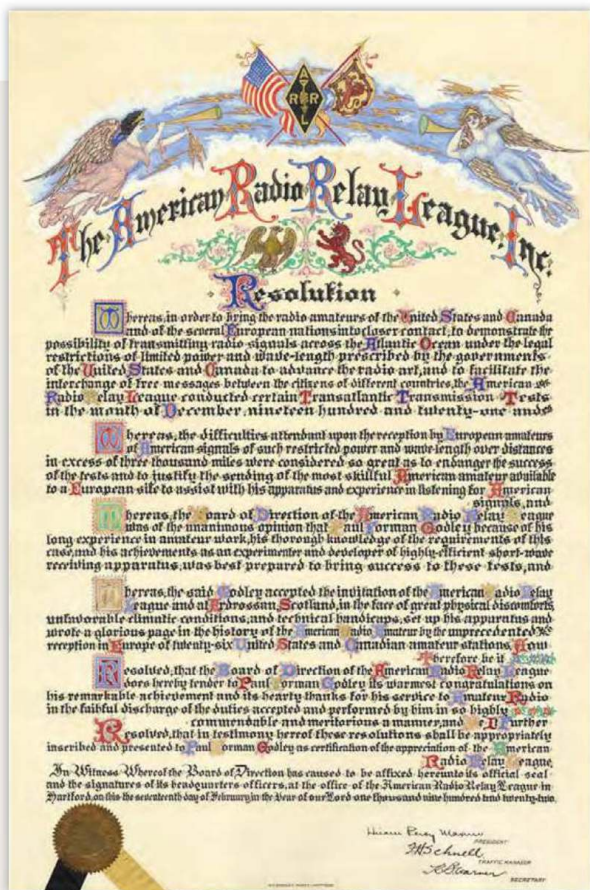 A
R R
L
The American Radio Relay League, Inc.
Resolution
Whereas, in order to bring the radio amateurs of the United States and Canada
and of the several European nations into closer contact, to demonstrate the
possibility of transmitting radio signals across the Atlantic Ocean under the legal
restrictions of limited power and wave-length prescribed by the governments
of the United States and Canada to advance the radio art, and to facilitate the
interchange of free messages between the citizens of different countries, the American
Radio Relay League conducted certain Transatlantic Transmission Tests
in the month of December, nineteen hundred and twenty-one and
Whereas, the difficulties attendant upon the reception by European amateurs
of American signals of such restricted power and wave-length over distances
in excess of three thousand miles were considered so great as to endanger the success
of the tests and to justify the sending of the most skillful American amateur available
to a European site to assist with his apparatus and experience in listening for American
signals, and
Whereas, the Board of Direction of the American Radio Relay League
was of the unanimous opinion that Paul Forman Godley because of his
long experience in amateur work, his thorough knowledge of the requirements of this
case, and his achievements as an experimenter and developer of highly-efficient short-wave
receiving apparatus, was best prepared to bring success to these tests, and
Whereas, the said Godley accepted the invitation of the American Radio Relay
League and at Ardrossan, Scotland, in the face of great physical discomforts,
unfavorable climatic conditions, and technical handicaps, set up his apparatus and
wrote a glorious page in the history of the American Radio Amateur by the unprecedented
reception in Europe of twenty-six United States and Canadian amateur stations, Now
Therefore be it
Resolved, that the Board of Direction of the American Radio Relay League
does hereby tender to Paul Forman Godley its warmest congratulations on
his remarkable achievement and its hearty thanks for his service to Amateur Radio
in the faithful discharge of the duties accepted and performed by him in so highly
commendable and meritorious a manner, and Be It Further
Resolved, that in testimony hereof these resolutions shall be appropriately
inscribed and presented to Paul Forman Godley as certification of the appreciation of the American
Radio Relay League.
In Witness Whereof the Board of Direction has caused to be affixed hereunto its official seal
and the signatures of its headquarters officers, at the office of The American Radio Relay League in
Hartford, on this the seventeenth day of February in the Year of our Lord one thousand nine hundred and twenty-two.
Hiram Percy Maxim
PRESIDENT
F H Schnell
TRAFFIC MANAGER
K B Warner
SECRETARY